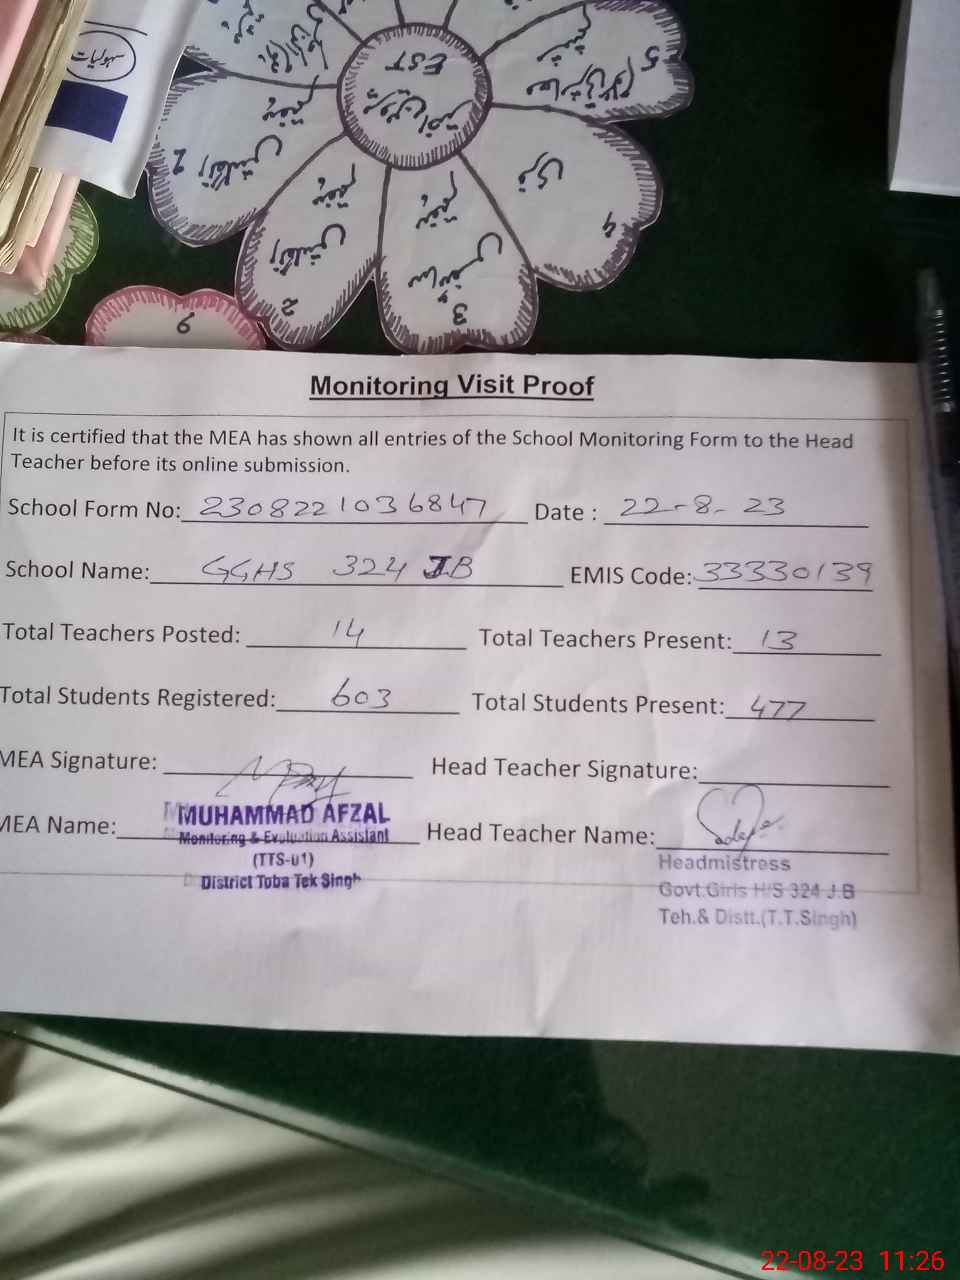 سہولیات
EST
5
4
3
سائنس
ہفتم
2
انگلش
ہفتم
انگلش
ہفتم
9
Monitoring Visit Proof
It is certified that the MEA has shown all entries of the School Monitoring Form to the Head
Teacher before its online submission.
School Form No: 2308221036847 Date : 22-8-23
School Name: GGHS 324 JB EMIS Code: 33330139
Total Teachers Posted: 14 Total Teachers Present: 13
Total Students Registered: 603 Total Students Present: 477
MEA Signature: Head Teacher Signature:
MEA Name: MUHAMMAD AFZAL Head Teacher Name:
Monitoring & Evaluation Assistant
(TTS-01)
District Toba Tek Singh
Headmistress
Govt.Girls H/S 324 J.B
Teh.& Distt.(T.T.Singh)
22-08-23 11:26